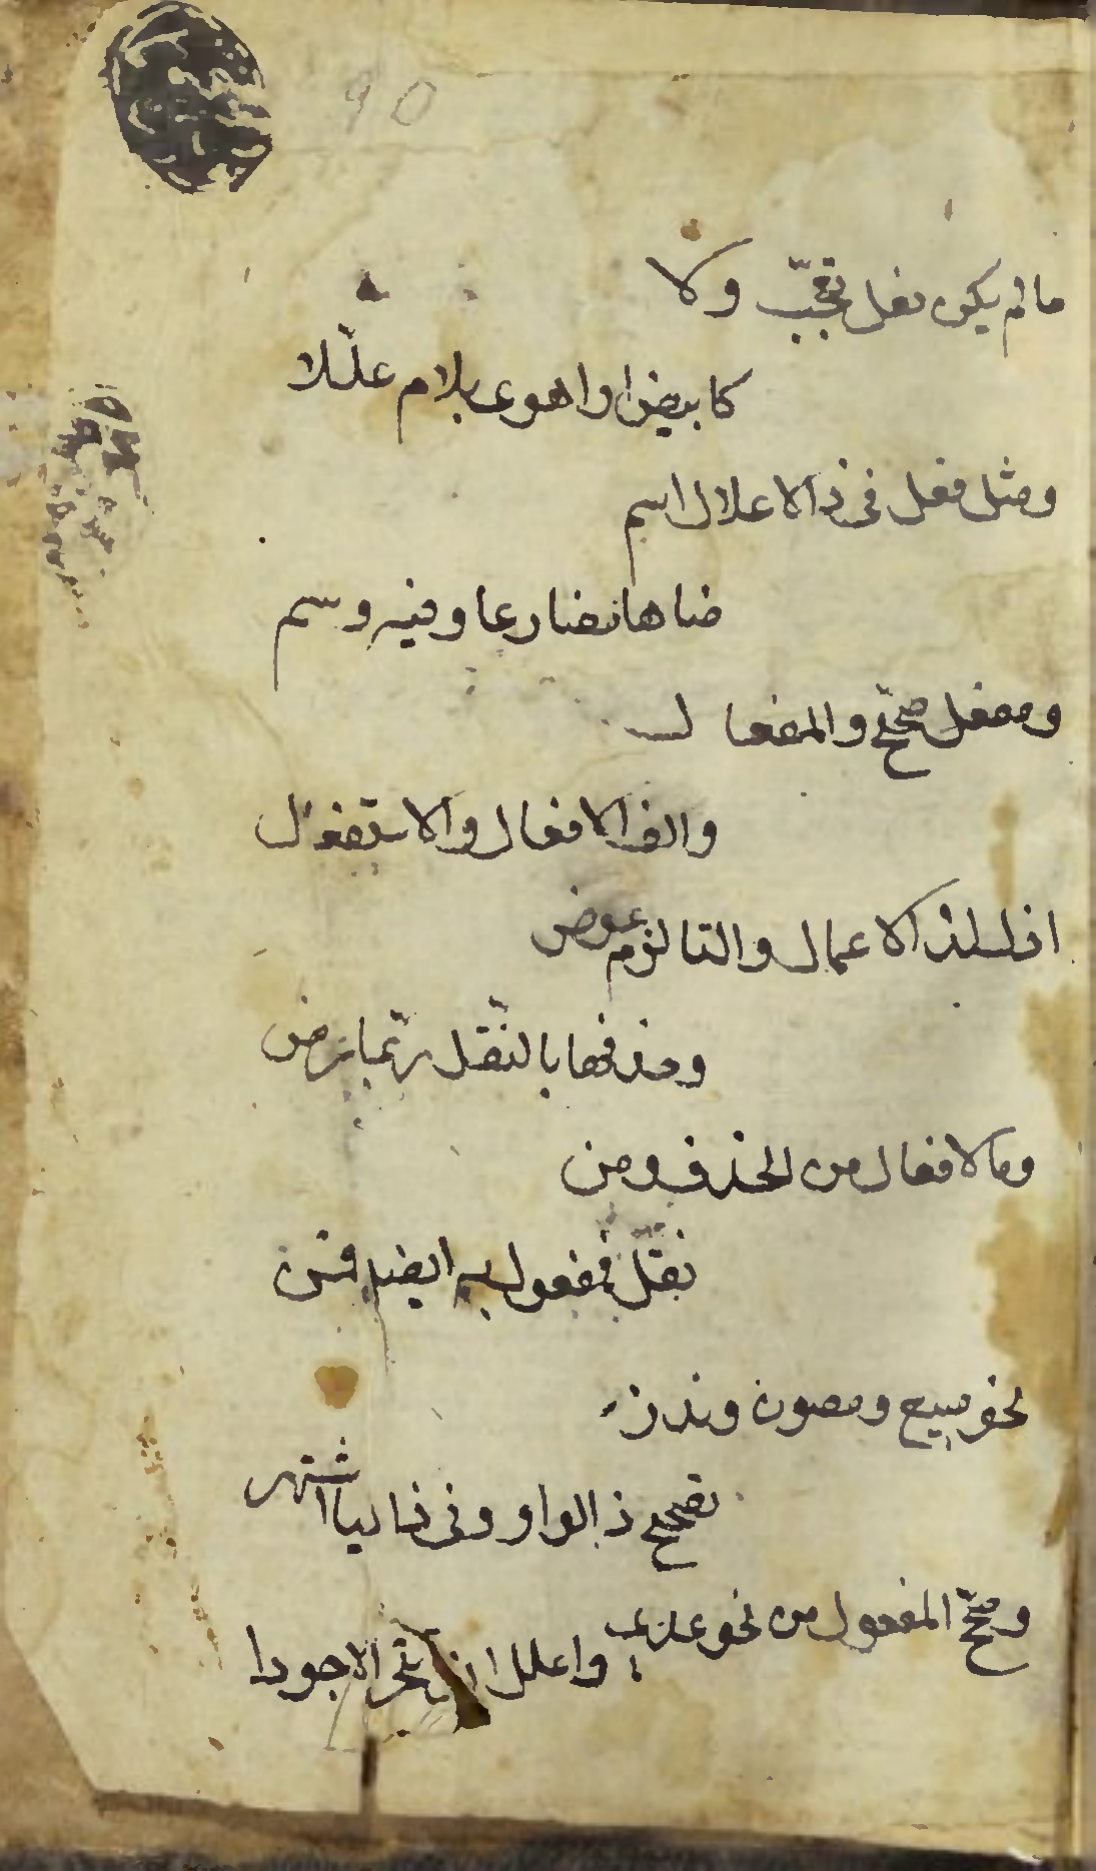 90
مالم يكن فعل تعجّب ولا
كابيض او اهوى بلام علّلا
ومثل فعل فى ذا الاعلال اسم
ضاها مضارعا وفيه وسم
ومفعل صحّح والمفعال
والف الافعال والاستفعال
ازل لذا الاعمال والتا الزم عوض
وحذفها بالنّقل ربّما عرض
وما لافعال من الحذف ومن
نقل فمفعول به ايضا قمن
نحو مبيع ومصون وندر
تصحيح ذا الواو وفى ذا اليا اشتهر
وصحّح المفعول من نحو عدى واعلل ان لم تتحر الاجودا